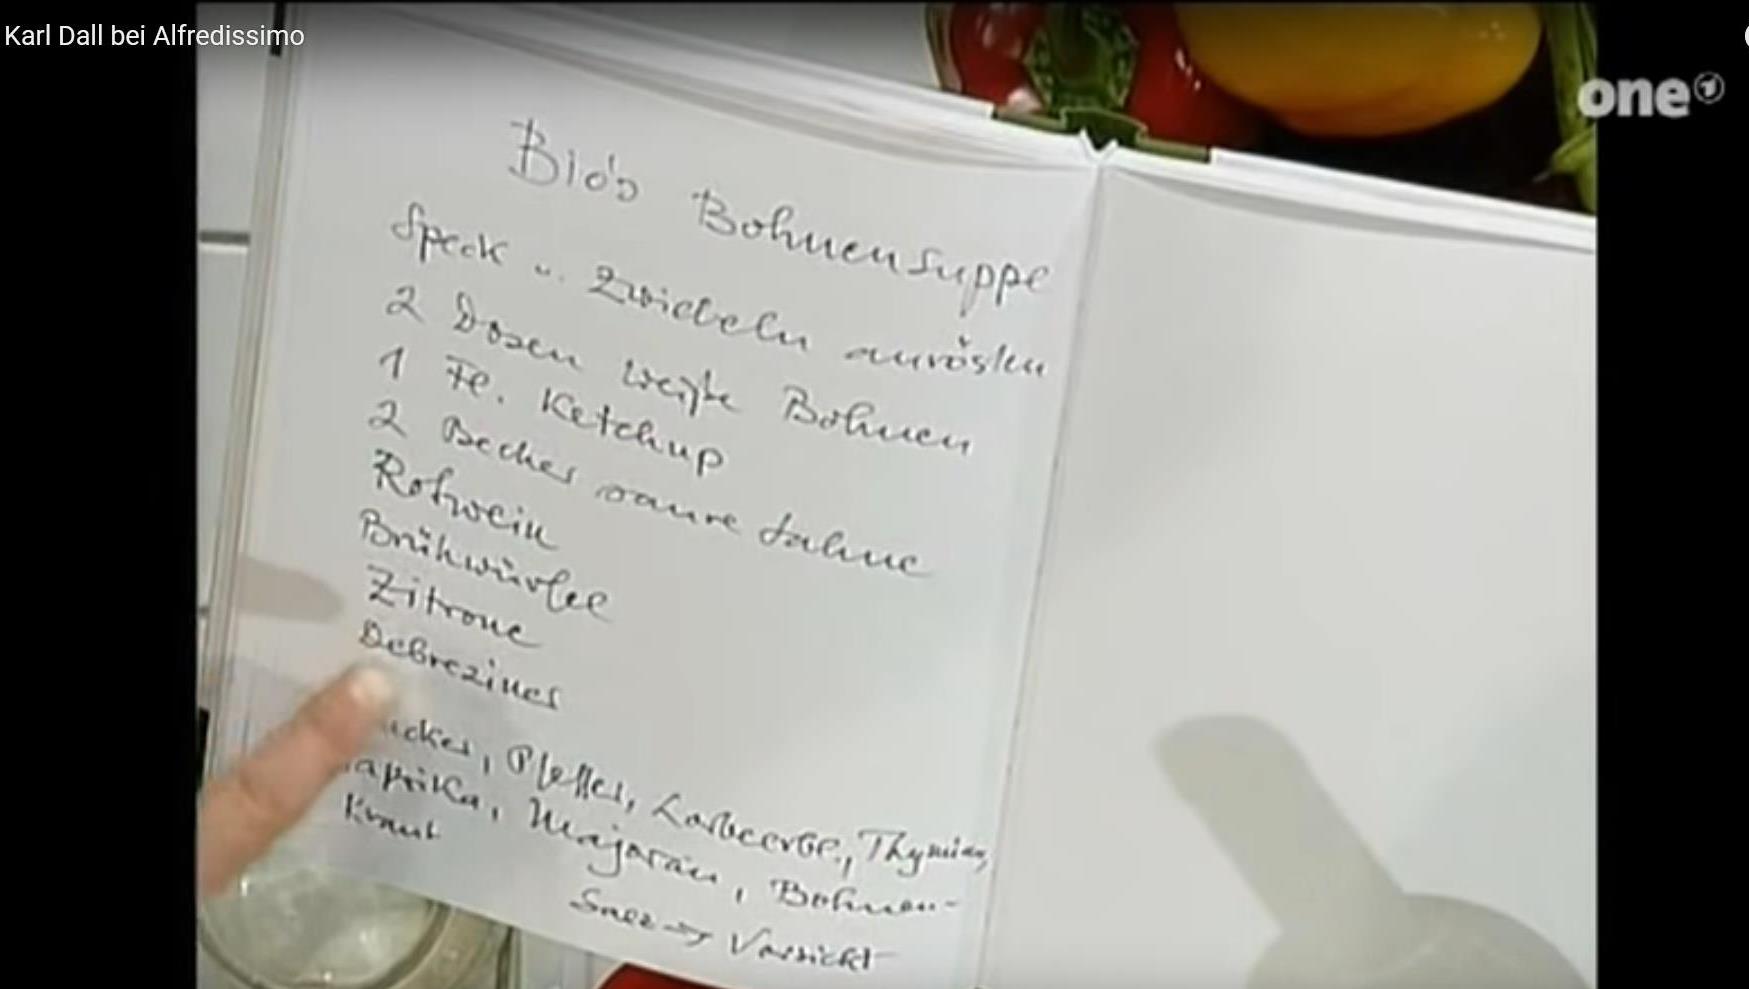 Karl Dall bei Alfredissimo
one
Bio's Bohnensuppe
Speck u. Zwiebeln anrösten
2 Dosen weiße Bohnen
1 Fl. Ketchup
2 Becher saure Sahne
Rotwein
Brühwürfel
Zitrone
Debreziner
ucker, Pfeffer, Lorbeerbl., Thymian,
aprika, Majoran, Bohnen-
Kraut
Salz → Vorsicht